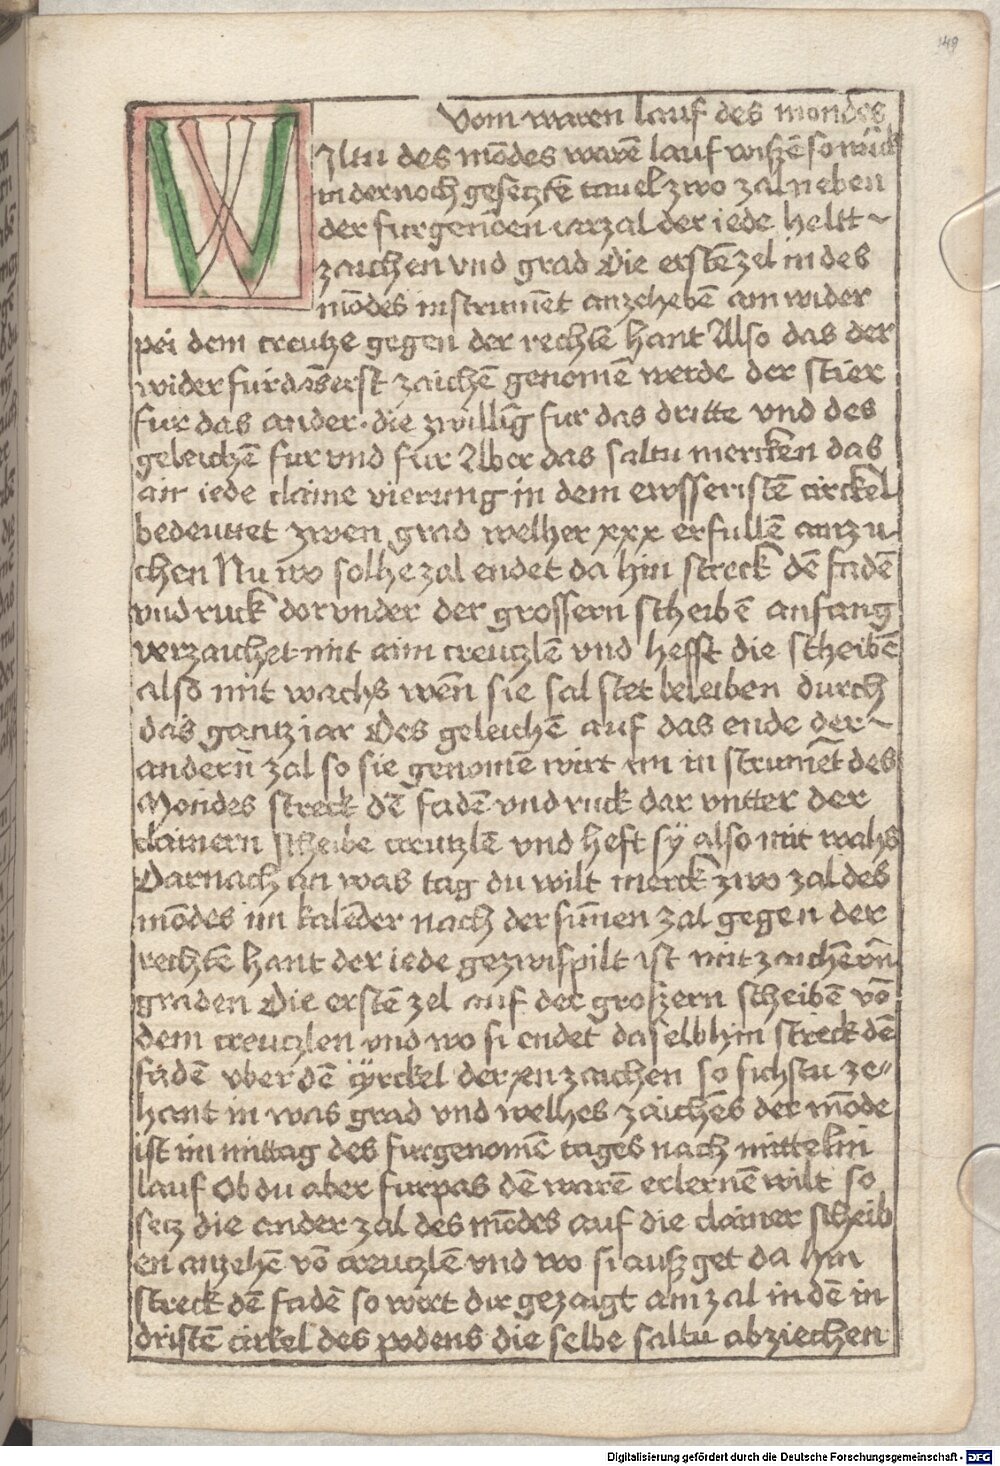 149
Vom waren lauf des mondes
WJltu des mōdes warē lauf wißē so merck
in dernoch gesetztē tauel zwo zal neben
der furgenōen iarzal der iede heltt~
zaichen vnd grad Die erstē zel in des
mōdes instrumēt anzehebē am wider
pei dem creutze gegen der rechtē hant Also das der
wider fur das erst zaichē genomē werde der stier
fur das ander · die zwillīg fur das dritte vnd des
geleichē fur vnd fur Aber das saltu mercken das
ain iede claine vierung in dem ewsseristē circkel
bedeuttet zwen grad welher xxx erfullē ain zai
chen Nu wo solhe zal endet da hin streck dē fadē
vnd ruck dor vnder der grossern scheibē anfang
verzaichet mit aim creuczlē vnd hefft die scheibē
also mit wachs wēn sie sal stet beleiben durch
das gantz iar Des geleichē auf das ende der~
andern zal so sie genomē wirt im instrumēt des
Mondes streck dē fadē vnd ruck dar vntter der
clainern scheibe creutzlē vnd heft sÿ also mit wahs
Darnach an was tag du wilt merck zwo zal des
mōdes im kalēder nach der sūnen zal gegen der
rechtē hant der iede gezwispilt ist mit zaichē vñ
graden Die erstē zel auf der großern scheibē vō
dem creuczlen vnd wo si endet daselbhin streck dē
fadē vber dē cÿrckel der xii zaichen so sichstu ze=
hant in was grad vnd welhes zaichēs der mōde
ist im mittag des furgenomē tages nach mittelm
lauf Ob du aber furpas dē warē erlernē wilt so
secz die ander zal des mōdes auf die clainer scheib
en anzehē vō creuczlē vnd wo si außget da hin
streck dē fadē so wirt dir gezaigt ain zal in dē in
dristē cirkel des podens die selbe saltu abziechen
Digitalisierung gefördert durch die Deutsche Forschungsgemeinschaft - DFG